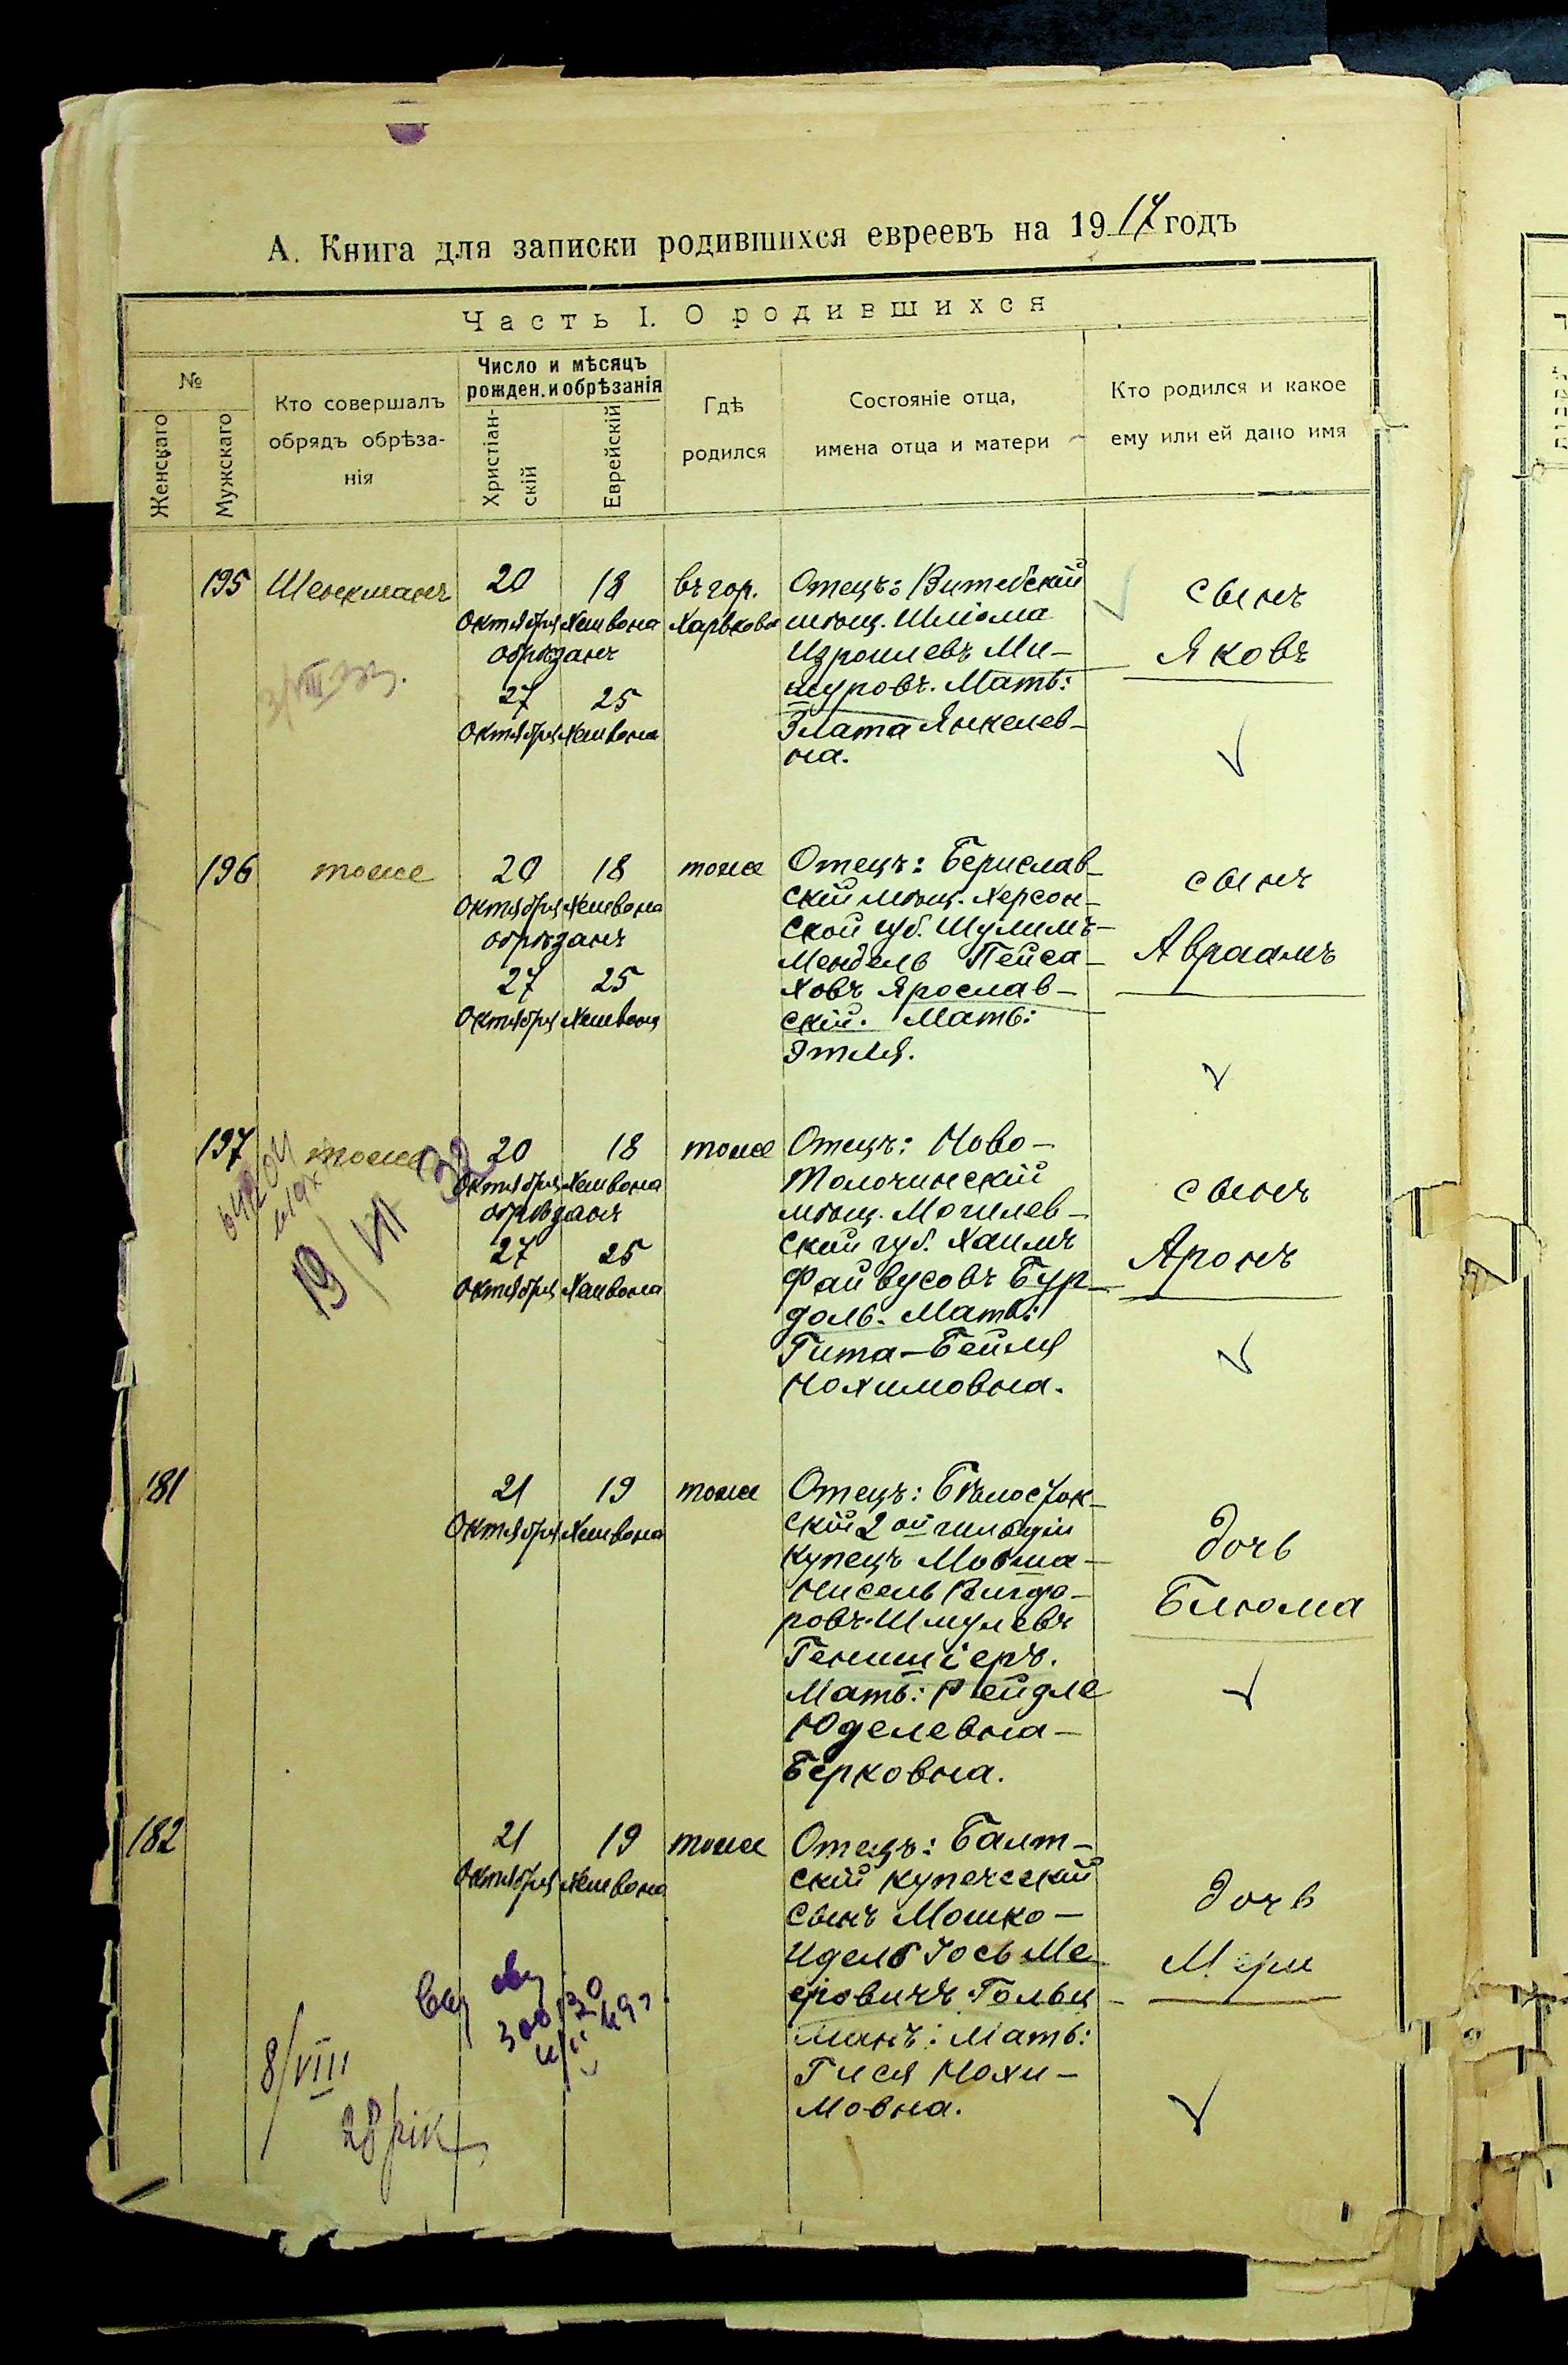 А. Книга для записки родившихся евреевъ на 1917 годъ
Часть I. О родившихся
№
Женскаго
Мужскаго
Кто совершалъ
обрядъ обрѣза-
нія
Число и мѣсяцъ
рожден. и обрѣзанія
Христіан-
скій
Еврейскій
Гдѣ
родился
Состояніе отца,
имена отца и матери
Кто родился и какое
ему или ей дано имя
195
Шенкманъ
20
Октября
обрѣзанъ
27
Октября
18
Хешвона
25
Хешвона
въ гор.
Харьковѣ
Отецъ: Витебскій
мѣщ. Шліома
Израилевъ Ми-
Мать:
Злата Янкелев-
на.
сынъ
Яковъ
196
тоже
20
Октября
обрѣзанъ
27
Октября
18
Хешвона
25
Хешвона
тоже
Отецъ: Берислав-
скій мѣщ. Херсон-
ской губ. Шулимъ-
Мендель Пейса-
ховъ Ярослав-
скій. Мать:
Этля.
сынъ
Авраамъ
197
тоже
19/VII 32
20
Октября
обрѣзанъ
27
Октября
18
Хешвона
25
Хешвона
тоже
Отецъ: Ново-
Толочинскій
мѣщ. Могилев-
ской губ. Хаимъ
Файвусовъ Бур-
доль. Мать:
Гита-Бейля
Нохимовна.
сынъ
Аронъ
181
21
Октября
19
Хешвона
тоже
Отецъ: Бѣлосток-
скій 2ой гильдіи
купецъ Мовша-
Нисель Вигдо-
ровъ-Шмулевъ
Мать: Рейдле
Юделевна-
Берковна.
дочь
Блюма
182
21
Октября
19
Хешвона
тоже
Отецъ: Балт-
скій купеческій
сынъ Мошко-
Идель Іось Ме-
еровичъ Гольц-
манъ: Мать:
Гися Нохи-
мовна.
дочь
Мери
8/VIII
28 рік